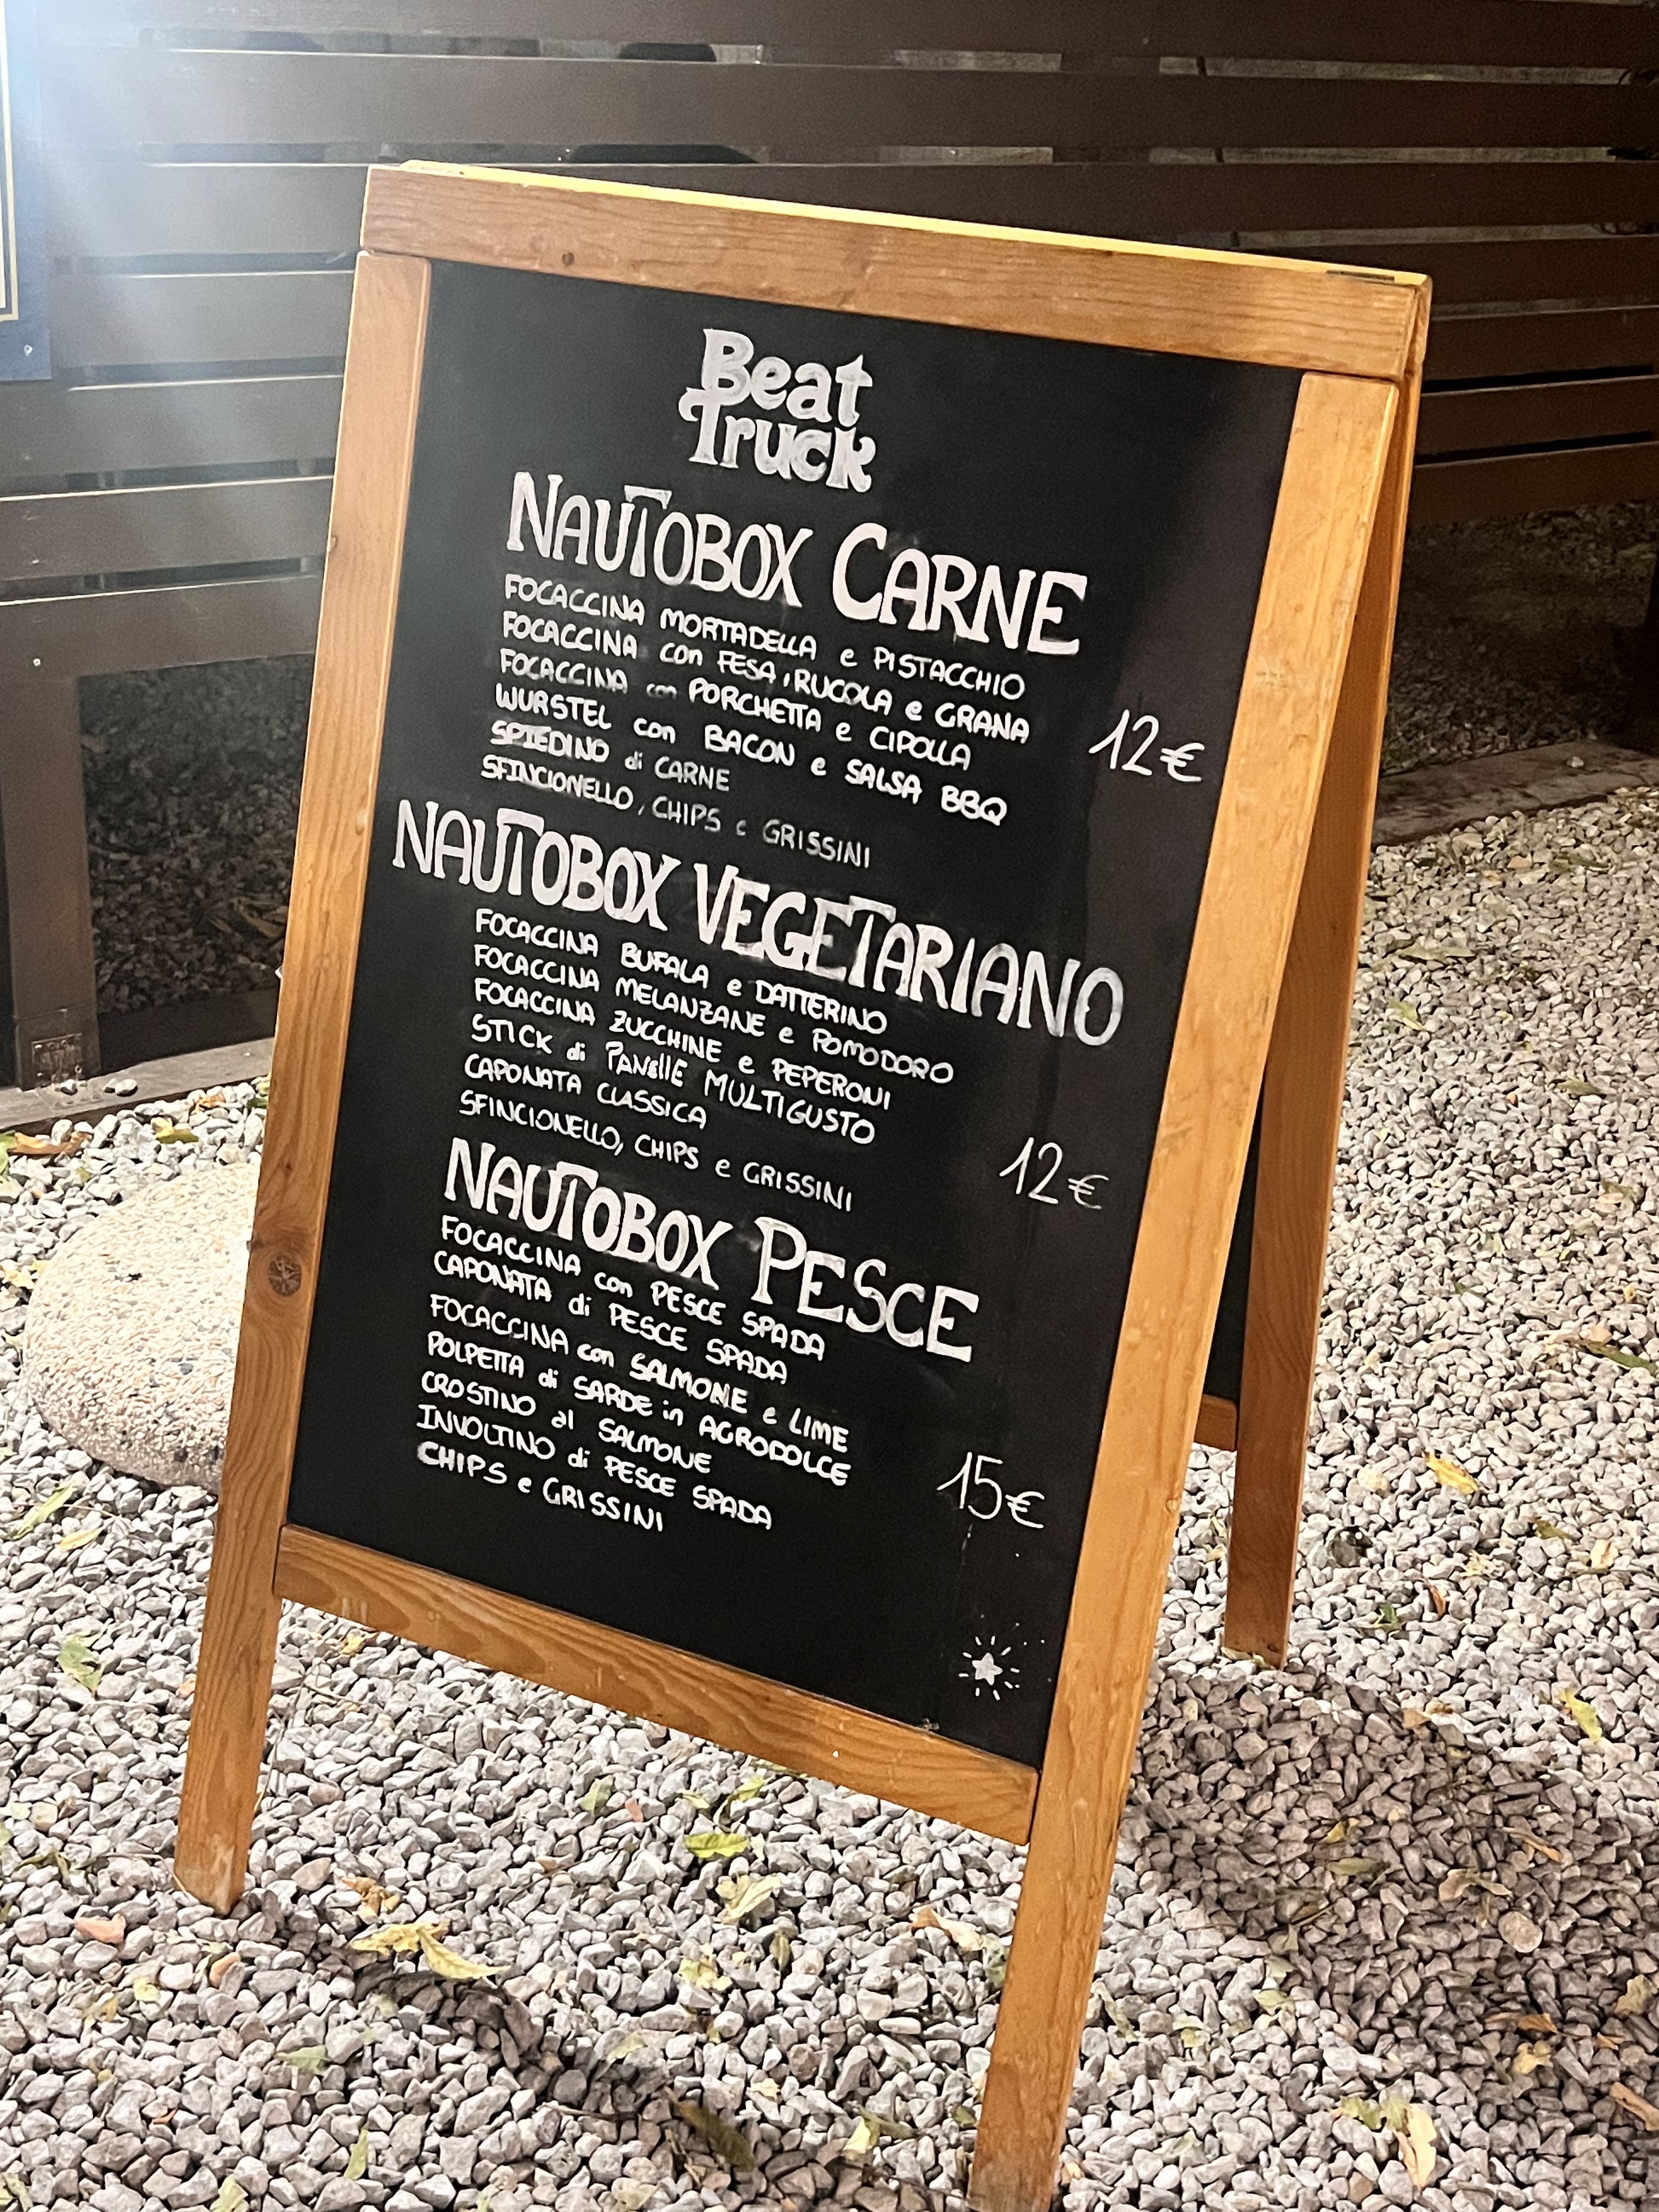 Beat
Truck
NAUTOBOX CARNE
FOCACCINA MORTADELLA e PISTACCHIO
FOCACCINA con FESA, RUCOLA e GRANA
FOCACCINA con PORCHETTA e CIPOLLA
WURSTEL con BACON e SALSA BBQ
12€
SPIEDINO di CARNE
SFINCIONELLO, CHIPS e GRISSINI
NAUTOBOX VEGETARIANO
FOCACCINA BUFALA e DATTERINO
FOCACCINA MELANZANE e POMODORO
FOCACCINA ZUCCHINE e PEPERONI
STICK di PANELLE MULTIGUSTO
CAPONATA CLASSICA
SFINCIONELLO, CHIPS e GRISSINI
12€
NAUTOBOX PESCE
FOCACCINA con PESCE SPADA
CAPONATA di PESCE SPADA
FOCACCINA con SALMONE e LIME
POLPETTA di SARDE in AGRODOLCE
CROSTINO al SALMONE
INVOLTINO di PESCE SPADA
CHIPS e GRISSINI
15€